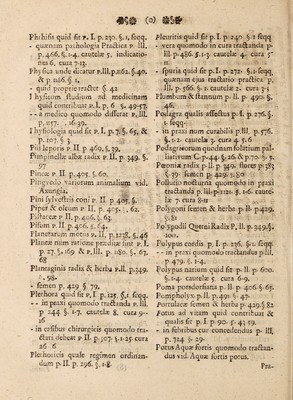 (o)
Phthisis quid sit P. I. p. 230. §. 1. seqq.
- quænam pathologia Practica P. III.
p. 466. §. 1.4. cautelæ 5. indicatio-
nes 6. cura 7-13.
Physica unde dicatur P. III. p. 1162. §. 40.
& p. 1166. §. 1.
- quid proprie tractet §. 42
Physicum studium ad medicinam
quid contribuat P. I. p. 6 §. 49-57.
- a medico quomodo differat P. III.
p. 1167. §. 39.
Physiologia quid sit P. I. p. 7. §. 65. &
p. 107. §. 3
Pili leporis P. II p. 469 §. 39.
Pimpinellæ albæ radix P. II. p. 349. §.
97
Pineæ P. II. p. 405. §. 60.
Pingvedo variorum animalium vid.
Axungia.
Pini sylvestris coni P. II. p. 407. §.
Piper & oleum P. II. p. 405. §. 62.
Pistaceæ P. II. p. 406. §. 63.
Pisum P. II. p. 406. §. 64.
Planetarum motus P. II. p. 1228. §. 46
Plantæ num ratione præditæ sint P. I.
p. 27 §. 169 & P. III. p. 280. §. 67.
68
Plantaginis radix & herba P. II. p. 349.
§. 98-
Plethora quid sit P. I. p. 125. §. 1. seqq.
- in praxi quomodo tractanda P. III.
p. 244 §. 1.7. cautelæ 8. cura 9-
16
- in cesibus chirurgicis quomodo tra-
ctari debeat P. II. p. 707. §. 1-25. cura
26 6
Plethoricis quale regimen ordinan-
dum p. II. p. 296. §. 1-8
Pleuritis quid sit P. I. p. 240. §. 1 seqq
- vera quomodo in cura tractanda P.
III p. 486. §. 1-3 cautelæ 4. cura 5-
11
- spuria quid sit P. I. p. 272. §. 1. seqq
quænam ejus tractatio practica P.
III. p. 566. §. 1. cautelæ 2. cura 3-5
Plumbum & stannum P. II. p. 490. §.
46.
Podagra qualis affectus P. I. p. 276. §.
1. seqq.
- in praxi num curabilis P. III. p. 576.
§. 1-2. cautelæ 4. cura 5-6.
Podagricorum quodnam solatium pal-
liativum C. p. 44. §. 26 & p. 70 §. 5.
Pœoniæ radix P. II p. 349. flores p 387
§. 39. semen P. 429. §. 80
Pollutio nocturna quomodo in praxi
tractanda P. III. p. 720. §. 1-6 caute-
læ 7. cura 8-11
Polygoni semen & herba P. II p. 429.
§. 81
Polypodii Querni Radix P. II. p. 349. §.
100.
Polypus cordis P. I. p. 236. §. 1. seqq.
- - in praxi quomodo tractandus P. III.
p. 479. §. 1-4.
Polypus narium quid sit P. II p. 600.
§. 1-4. cautelæ 5. cura 6-9.
Poma pomdersiana P. II p. 406 §. 65.
Pompholyx P. II. p. 491 §. 47.
Portulacæ semen & herba P. 429. §. 82
Potus ad vitam quid contribuat &
qualis sit P. I. p. 90. §. 43. 59.
- in febribus cuc concedendus P. III.
p. 724. §. 29-
Potus Aquæ fortis quomodo tractan-
dus vid. Aquæ fortis potus.
Præ-